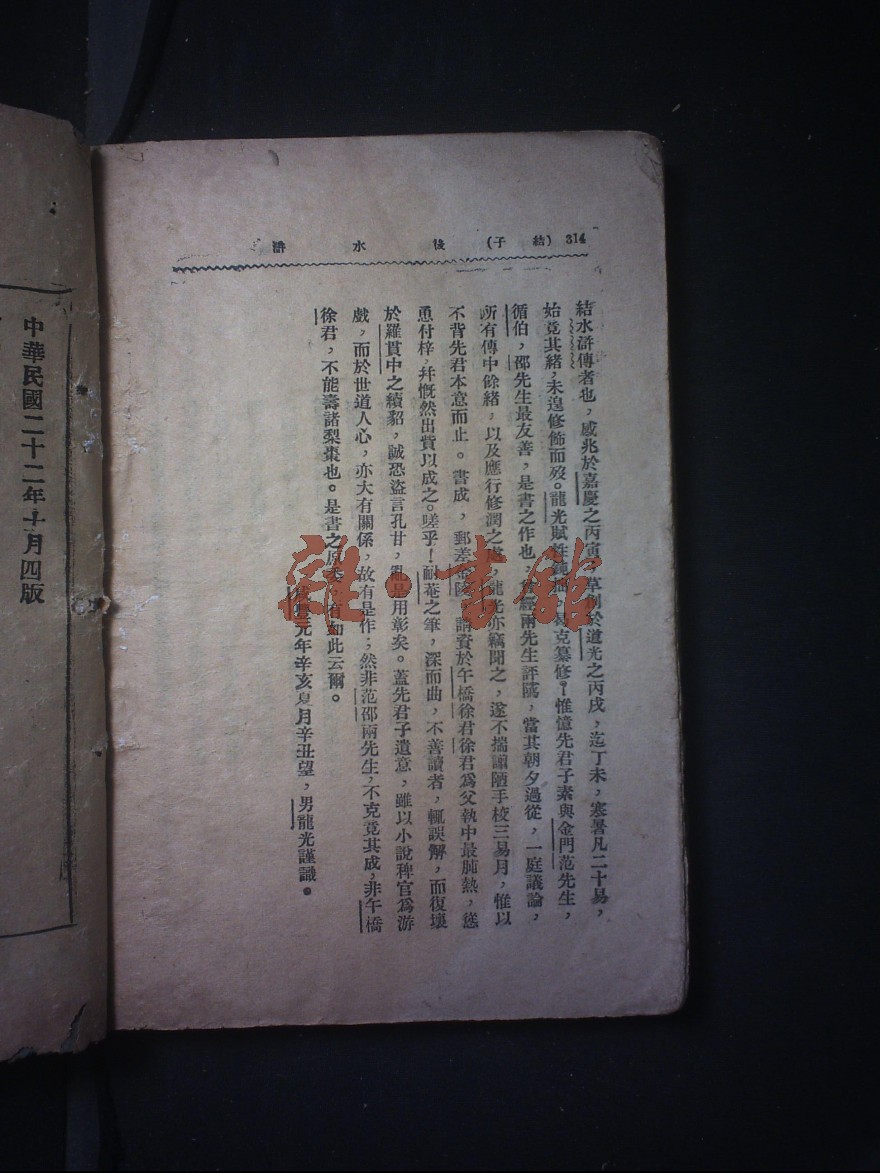 314 (結子) 後水滸
結水滸傳者也，感兆於嘉慶之丙寅，草創於道光之丙戌，迄丁未，寒暑凡二十易，
始竟其緒，未遑修飾而歿。龍光賦性 克纂修！惟憶先君子素與金門范先生，
循伯，邵先生最友善，是書之作也，曾經兩先生評隲，當其朝夕過從，一庭議論，
所有傳中餘緒，以及應行修潤之處，龍光亦竊聞之，遂不揣譾陋手校三易月，惟以
不背先君本意而止。書成，郵差金陵，請資於午橋徐君徐君爲父執中最肺熱，慫
恿付梓，幷慨然出貲以成之。嗟乎！耐菴之筆，深而曲，不善讀者，輒誤解，而復壞
於羅貫中之續貂，誠恐盜言孔甘，亂是用彰矣。蓋先君子遺意，雖以小說稗官爲游
戲，而於世道人心，亦大有關係，故有是作；然非范邵兩先生，不克竟其成，非午橋
徐君，不能壽諸梨棗也。是書之原委，有如此云爾。
咸豐元年辛亥夏月辛丑望，男龍光謹識。
中華民國二十二年十月四版
雜·書館